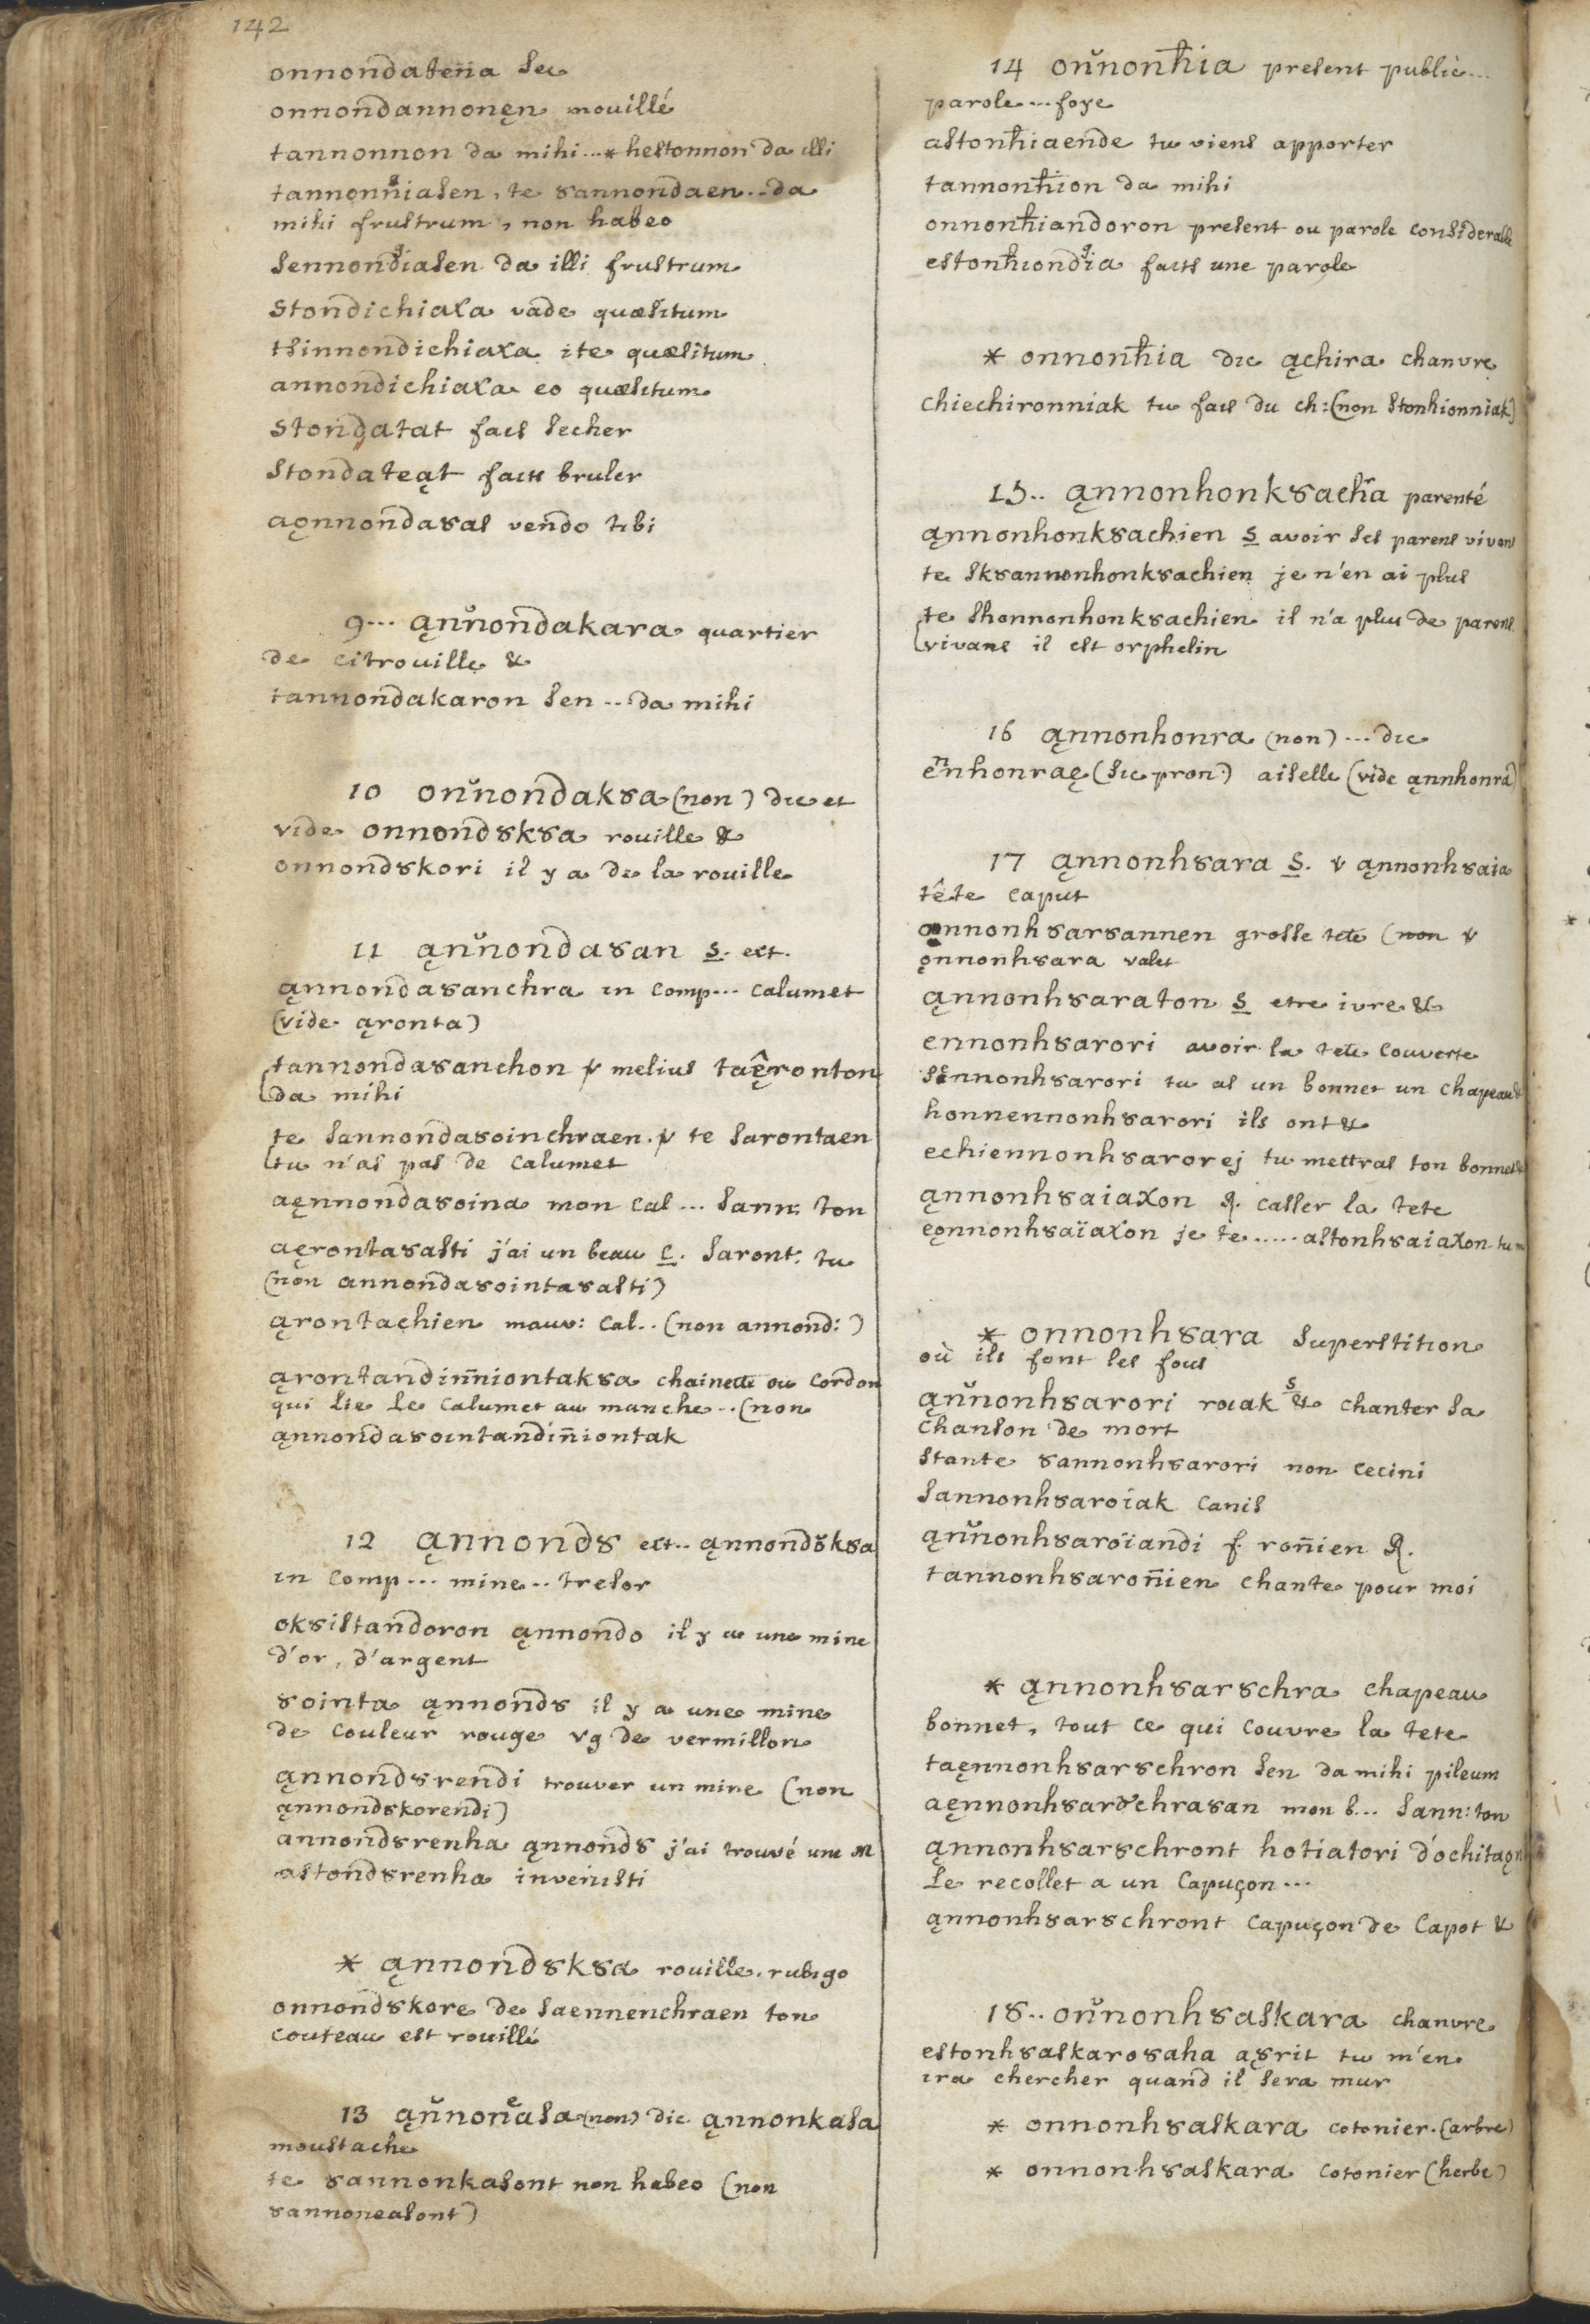 142
onnondateña sec
onnondannonęn mouillé
tannonnon da mihi...* hestonnon da illi
tannonn͛iasen, te ȣannondaen... da
mihi frustrum, non habeo
sennondiasen da illi frustrum
stondichiaxa vade quæsitum
tsinnondichiaxa ite quæsitum
annondichiaxa eo quæsitum
stondatat fais secher
stondateąt faits bruler
aǫnnondaȣas vendo tibi
9... ąnnondakara quartier
de citrouille &
tannondakaron sen... da mihi
10 onnondakȣa (non) dic et
vide onnondȣkȣa rouille &
onnondȣkori il y a de la rouille
11 ąnnondaȣan S. ect.
ąnnondaȣanchra in comp... calumet
(vide ąronta)
tannondaȣanchon v melius taęronton
da mihi
te sannondaȣoinchraen. v te sarontaen
tu n'as pas de calumet
aęnnondaȣoina mon cal... sann: ton
aęrontaȣasti j'ai un beau C. saront: tu
(non annondaȣointaȣasti)
ąrontachien mauv: cal.. (non annond:)
ąrontandinniontakȣa chainette ou cordon
qui lie le calumet au manche... (non
ąnnondaȣointandinniontak
12 ąnnondȣ ect.. ąnnondȣkȣa
in comp... mine.. tresor
okȣistandoron ąnnondo il y a une mine
d'or, d'argent
ȣointa ąnnondȣ il y a une mine
de couleur rouge vg de vermillon
ąnnondȣrendi trouver un mine (non
ąnnondȣkorendi)
annondȣrenha ąnnondȣ j'ai trouvé une m
astondȣrenha invenisti
* ąnnondȣkȣa rouille. rubigo
onnondȣkore de saennenchraen ton
couteau est rouillé
13 ąnnoneasa (non) dic ąnnonkasa
moustache
te ȣannonkasont non habeo (non
ȣannoneasont)
14 onnonhia present public...
parole... foye
astonhiaende tu viens apporter
tannonhion da mihi
onnonhiandoron present ou parole considerable
estonhiondia faits une parole
* onnonhia dic ąchira chanvre
chiechironniak tu fais du ch: (non stonhionniak)
15.. ąnnonhonkȣacha parenté
ąnnonhonkȣachien S avoir ses parens vivans
te skȣannonhonkȣachien je n'en ai plus
te shonnonhonkȣachien il n'a plus de parens
vivans il est orphelin
16 ąnnonhonra (non)... dic
ennhonraę (sic pron.) aiselle (vide ąnnhonra)
17 ąnnonhȣara S. v ąnnonhȣaia
tête caput
ąnnonhȣarȣannen grosse tete (non v
ǫnnonhȣara valet
ąnnonhȣaraton S etre ivre &
ennonhȣarori avoir la tete couverte
sennonhȣarori tu as un bonnet un chapeau &
honnennonhȣarori ils ont &
echiennonhȣarorej tu mettras ton bonnet &
ąnnonhȣaiaxon R. casser la tete
eǫnnonhȣaïaxon je te..... astonhȣaiaxon tu m
* onnonhȣara superstition
où ils font les fous
ąnnonhȣarori roiak S & chanter sa
chanson de mort
stante ȣannonhȣarori non cecini
sannonhȣaroiak canis
ąnnonhȣaroïandi f. roñien R.
tannonhȣaroñien chante pour moi
* ąnnonhȣarȣchra chapeau
bonnet, tout ce qui couvre la tete
taęnnonhȣarȣchron sen da mihi pileum
aęnnonhȣarȣchraȣan mon b... sann: ton
ąnnonhȣarȣchront hotiatori d'ochitaǫn
le recollet a un capuçon...
ąnnonhȣarȣchront capuçon de capot &
18.. onnonhȣaskara chanvre
estonhȣaskaroȣaha ąȣrit tu m'en
ira chercher quand il sera mur
* onnonhȣaskara cotonier. (arbre)
* onnonhȣaskara cotonier (herbe)